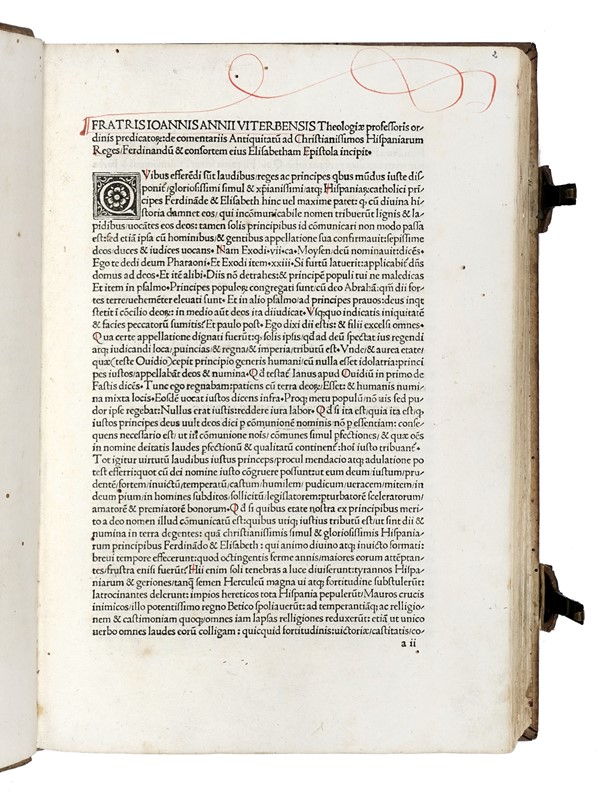 2
FRATRIS IOANNIS ANNII VITERBENSIS Theologiæ professoris or/
dinis predicatoꝝ:de comentariis Antiquitatũ ad Christianissimos Hispaniarum
Reges/Ferdinandũ & consortem eius Elisabetham Epistola incipit•
QVibus efferẽdi sũt laudibus/reges ac principes qbus mũdus iuste dis/
ponit̃/gloriosissimi simul & xp̃ianissimi/atq; Hispaniaꝝ catholici pri/
cipes Ferdinãde & Elisabeth hinc uel maxime patet: q• cũ diuina hi/
storia damnet eos/qui incõmunicabile nomen tribuerũt lignis & la/
pidibus/uocãtes eos deos: tamen solis principibus id cõmunicari non modo passa
est:sed etiã ipsa cũ hominibus/& gentibus appellatione sua confirmauit:sepissime
deos/duces & iudices uocans• Nam Exodi•vii•ca•Moysen/deũ nominauit:dicẽs•
Ego te dedi deum Pharaoni•Et Exodi item•xxiii•Si furtũ latuerit:applicabis dñs
domus ad deos•Et itẽ alibi•Diis nõ detrahes:& principẽ populi tui ne maledicas
Et item in psalmo•Principes populoꝝ congregati sunt/cũ deo Abrahã:qm̃ dii for/
tes terre/uehemẽter eleuati sunt• Et in alio psalmo/ad principes prauos:deus inqt
stetit ĩ cõcilio deoꝝ:in medio aũt deos ita diiudicat•Vsq;quo indicatis iniquitatẽ
& facies peccatorũ sumitis?Et paulo post• Ego dixi dii estis:& filii excelsi omnes•
Qua certe appellatione dignati fuerũt:q• solis ipsis/qd̃ ad deũ spectat ius regendi
atq; iudicandi loca/ꝓuincias/& regna/& imperia/tributũ est• Vnde/& aurea etate/
quæ(teste Ouidio)cepit principio generis humani/cũ nulla esset idolatria:princi/
pes iustos/appellabãt deos & numina•Qd testat̃ Ianus apud Ouidiũ in primo de
Fastis dicẽs• Tunc ego regnabam:patiens cũ terra deoꝝ/Esset: & humanis numi/
na mixta locis•Eosdẽ uocat iustos dicens infra•Proq; metu populũ/nõ uis sed pu/
dor ipse regebat:Nullus erat iustis:reddere iura labor•Qd si ita est/quia ita est:q•
iustos principes deus uult deos dici p cõmunionẽ nominis nõ p essentiam: conse/
quens necessario est/ut iñ cõmunione nois/cõmunes simul pfectiones/& quæ oẽs
in nomine deitatis laudes pfectionũ & qualitatũ continenꞇ:hoĩ iusto tribuanꞇ•
Tot igitur uirtutũ laudibus iustus princeps/procul mendacio atq; adulatione po
test efferri:quot cũ dei nomine iusto cõgruere possunt:ut eum deum/iustum/pru/
dentẽ/fortem/inuictũ/temperatũ/castum/humilem/pudicum/ueracem/mitem/in
deum pium/in homines subditos/sollicitũ/legislatorem:pturbatorẽ sceleratorum/
amatorẽ & premiatorẽ bonorum•Qd si quibus etate nostra ex principibus meri/
to a deo nomen illud cõmunicatũ est:quibus utiq; iustius tributũ est/ut sint dii &
numina in terra degentes: quã christianissimis simul & gloriosissimis Hispania/
rum principibus Ferdinãdo & Elisabeth: qui animo diuino atq; inuicto formati:
breui tempore effecerunt:quod octingentis ferme annis/maiores eorum attẽptan/
tes/frustra enisi fuerũt?Hii enim soli tenebras a luce diuiserunt:tyrannos Hispa/
niarum & geriones/tanq̃ semen Herculeũ magna ui atq; fortitudine substulerũt:
latrocinantes delerunt: impios hereticos tota Hispania pepulerũt/Mauros crucis
inimicos/illo potentissimo regno Betico spoliauerũt: ad temperantiãq; ac religio/
nem & castimoniam quoq;/omnes iam lapsas relligiones reduxerũt: etiã ut unico
uerbo omnes laudes eorũ colligam : quicquid fortitudinis:uictoriæ/castitatis/co/
a ii